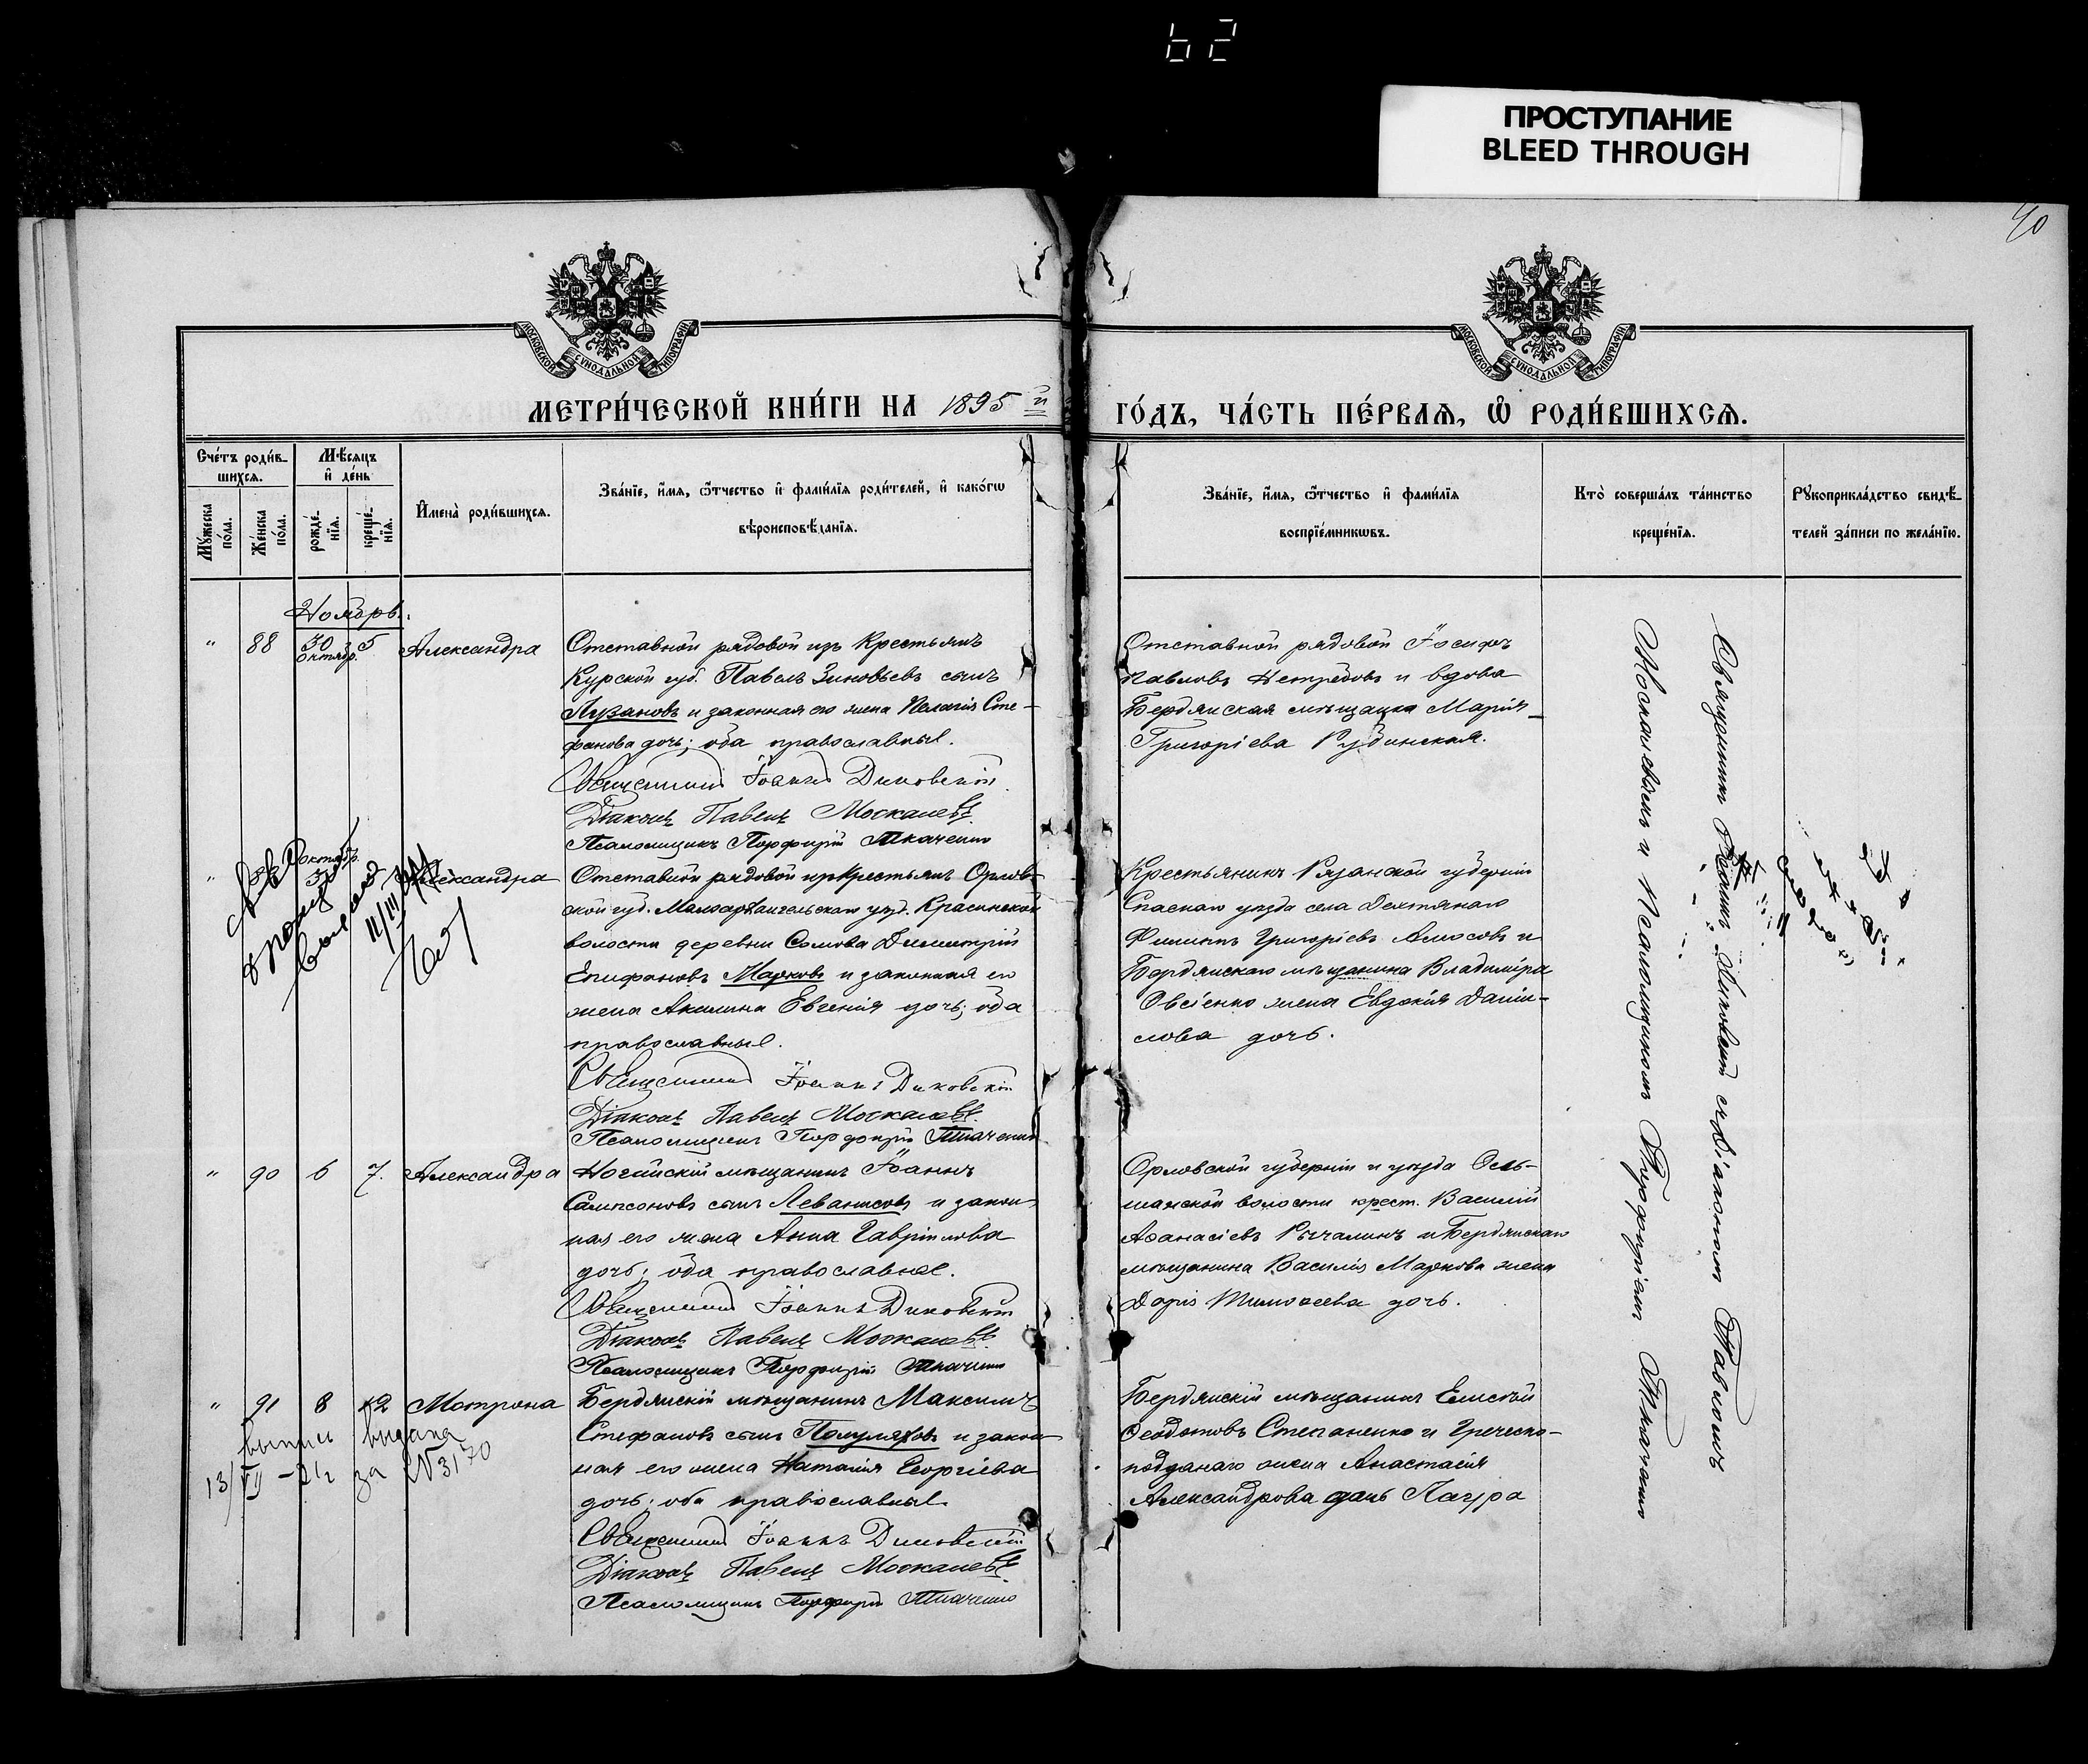 62
ПРОСТУПАНИЕ
BLEED THROUGH
40
МОСКОВСКОЙ СѴНОДАЛЬНОЙ ТИПОГРАФІИ
МОСКОВСКОЙ СѴНОДАЛЬНОЙ ТИПОГРАФІИ
МЕТРИ́ЧЕСКОЙ КНИ́ГИ НА 1895 й
ГО́ДЪ, ЧА́СТЬ ПЕ́РВАѦ, Ѡ РОДИ́ВШИХСѦ.
Сче́тъ роди́в-
шихсѧ.
Мѣ́сѧцъ
и де́нь
Мꙋ́жеска
по́ла.
Же́нска
по́ла.
рожде́-
нїѧ.
креще́-
нїѧ.
Имена̀ роди́вшихсѧ.
Зва́нїе, и́мѧ, ѻ́тчество и фами́лїѧ роди́телей, и како́гѡ
вѣроисповѣ́данїѧ.
Зва́нїе, и́мѧ, ѻ́тчество и фами́лїѧ
воспрїе́мникѡвъ.
Кто̀ соверша́лъ та́инство
креще́нїѧ.
Рꙋкоприкла́дство свидѣ́-
телей за́писи по жела́нїю.
Ноябрь.
" 88 30 Октябр. 5 Александра
Отставной рядовой изъ Крестьянъ
Курской губ. Павелъ Зиновьевъ сынъ
Лузановъ и законная его жена Пелагія Сте-
фанова дочь; оба православные.
Священникъ Іоаннъ Диковскій
Діаконъ Павелъ Москалевъ
Псаломщикъ Порфирій Ткаченко
Отставной рядовой Іосифъ
Павловъ и вдова
Бердянская мѣщанка Марія
Григоріева Рубинская.
" Октябр. Александра
выдана
11/III
Отставной рядовой изъ Крестьянъ Орлов-
ской губ. Малоархангельскаго уѣзд. Красинской
волости деревни Сомова Димитрій
Епифановъ Марковъ и законная его
жена Акилина Евгенія дочь; оба
православные.
Священникъ Іоаннъ Диковскій
Діаконъ Павелъ Москалевъ
Псаломщикъ Порфирій Ткаченко
Крестьянинъ Рязанской губерніи
Спаскаго уѣзда села Дехтянаго
Филиппъ Григоріевъ Амосовъ и
Бердянскаго мѣщанина Владиміра
Овсіенко жена Евдокія Даніи-
лова дочь.
" 90 6 7. Александра
Ногайскій мѣщанинъ Іоаннъ
Сампсоновъ сынъ Леванисовъ и закон-
ная его жена Анна Гавріилова
дочь; оба православные.
Священникъ Іоаннъ Диковскій
Діаконъ Павелъ Москалевъ
Псаломщикъ Порфирій Ткаченко
Орловской губерніи и уѣзда
волости крест. Василій
Аѳанасіевъ Рычалинъ и Бердянскаго
мѣщанина Василія Маркова жена
Дарія Тимоѳеева дочь.
" 91 8 12 Мотрона
выпись выдана
13/VII – 21г за N3170
Бердянскій мѣщанинъ Максимъ
Стефановъ сынъ Полуляховъ и закон-
ная его жена Наталія Георгіева
дочь; оба православные
Священникъ Іоаннъ Диковскій
Діаконъ Павелъ Москалевъ
Псаломщикъ Порфирій Ткаченко
Бердянскій мѣщанинъ Елисей
Ѳеодотовъ Степаненко и Греческо-
подданаго жена Анастасія
Александрова дочь
Священникъ Іоаннъ Диковскій съ діакономъ Павломъ
Москалевымъ и Псаломщикомъ Порфиріемъ Ткаченко